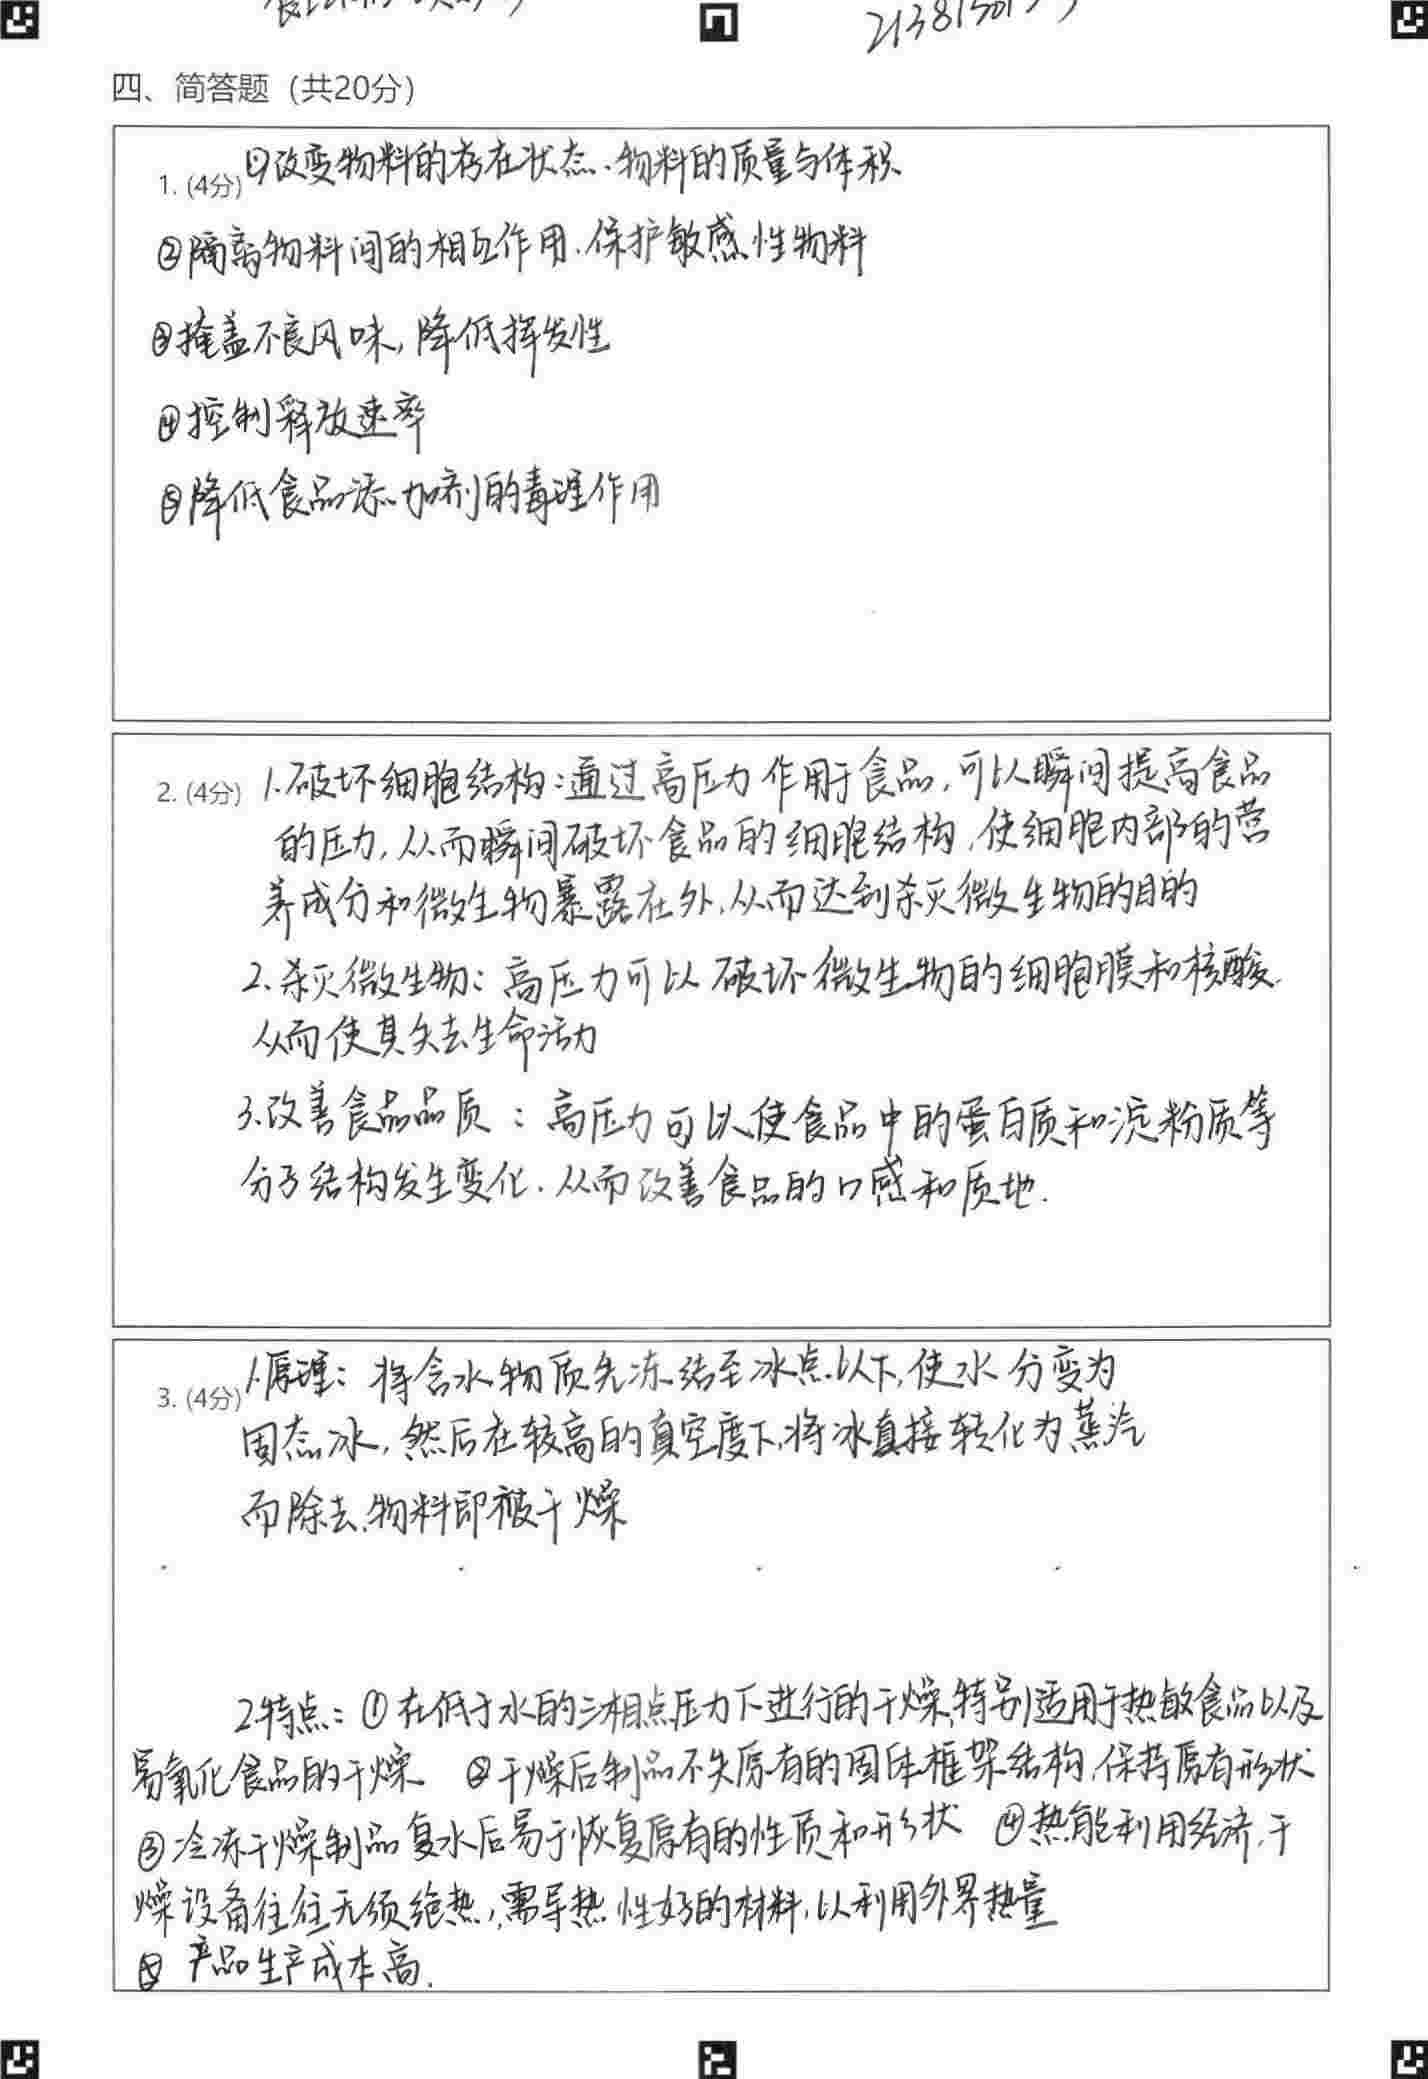 四、简答题（共20分）
1. (4分) ①改变物料的存在状态、物料的质量与体积
②隔离物料间的相互作用、保护敏感性物料
③掩盖不良风味，降低挥发性
④控制释放速率
⑤降低食品添加剂的毒理作用
2. (4分) 1.破坏细胞结构：通过高压力作用于食品，可以瞬间提高食品
的压力，从而瞬间破坏食品的细胞结构，使细胞内部的营
养成分和微生物暴露在外，从而达到杀灭微生物的目的
2、杀灭微生物：高压力可以破坏微生物的细胞膜和核酸，
从而使其失去生命活力
3.改善食品品质：高压力可以使食品中的蛋白质和淀粉质等
分子结构发生变化、从而改善食品的口感和质地.
3. (4分) 1.原理：将含水物质先冻结至冰点以下，使水分变为
固态冰，然后在较高的真空度下，将冰直接转化为蒸汽
而除去，物料即被干燥
2.特点：①在低于水的三相点压力下进行的干燥，特别适用于热敏食品以及
易氧化食品的干燥 ②干燥后制品不失原有的固体框架结构，保持原有形状
③冷冻干燥制品复水后易于恢复原有的性质和形状 ④热能利用经济，干
燥设备往往无须绝热，需导热性好的材料，以利用外界热量
⑤ 产品生产成本高.